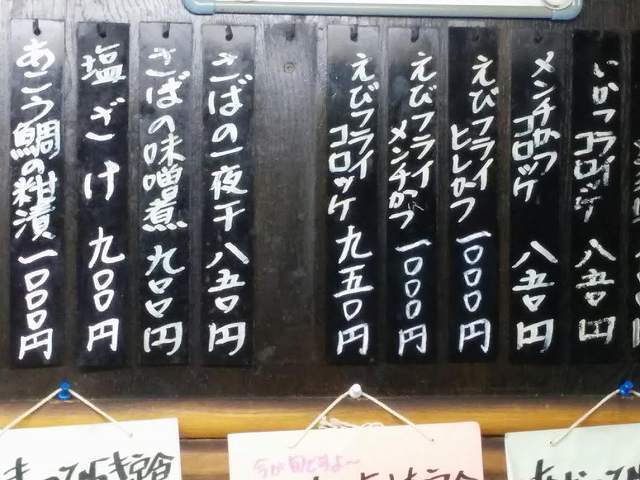 いかフライ
コロッケ 八五〇円
メンチかつ
コロッケ 八五〇円
えびフライ
ヒレかつ 一〇〇〇円
えびフライ
メンチかつ 一〇〇〇円
えびフライ
コロッケ 九五〇円
さばの一夜干 八五〇円
さばの味噌煮 九〇〇円
塩ざけ 九〇〇円
あこう鯛の粕漬 一〇〇〇円
今が旬ですよ〜